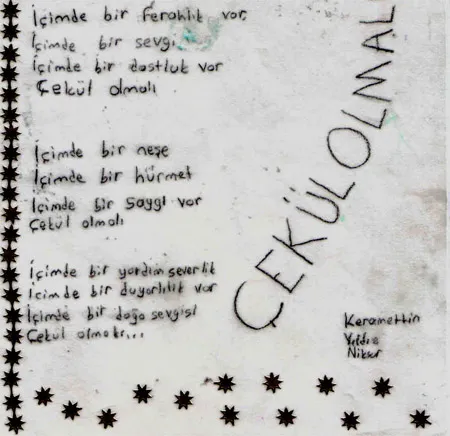 İçimde bir ferahlık var
İçimde bir sevgi
İçimde bir dostluk var
Çekül olmalı
İçimde bir neşe
İçimde bir hürmet
İçimde bir saygı var
Çekül olmalı
İçimde bir yardımseverlik
İçimde bir duyarlılık var
İçimde bir doğa sevgisi
Çekül olmalı...
ÇEKÜL OLMAL
Keramettin
Nikar